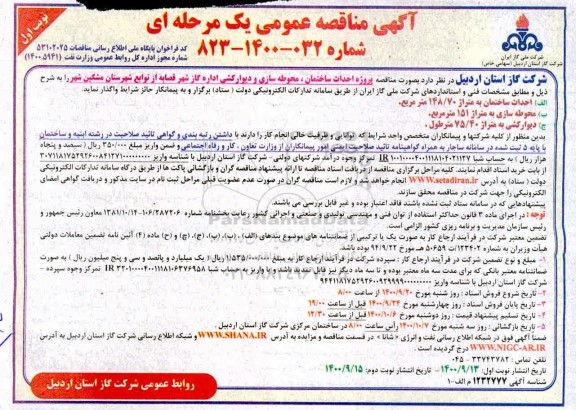 نوبت اول
آگهی مناقصه عمومی یک مرحله ای
شماره ۰۳۲-۱۴۰۰-۸۲۳
شرکت ملی گاز ایران
شرکت گاز استان اردبیل (سهامی خاص)
کد فراخوان پایگاه ملی اطلاع رسانی مناقصات ۵۳۱۰۲۰۲۵
شماره مجوز اداره کل روابط عمومی وزارت نفت (۱۴۰۰.۵۹۴۱)
شرکت گاز استان اردبیل در نظر دارد بصورت مناقصه پروژه احداث ساختمان ، محوطه سازی و دیوارکشی اداره گاز شهر قصابه از توابع شهرستان مشگین شهر را به شرح
ذیل و مطابق مشخصات فنی و استانداردهای شرکت ملی گاز ایران از طریق سامانه تدارکات الکترونیکی دولت ( ستاد) برگزار و به پیمانکار حائز شرایط واگذار نماید:
الف) احداث ساختمان به متراژ ۱۴۸/۷۰ متر مربع.
ب) محوطه سازی به متراژ ۱۵۱ مترمربع.
ج) دیوارکشی به متراژ ۷۵/۴۰ مترطول.
بدین منظور از کلیه شرکتها و پیمانکاران متخصص واجد شرایط که توانایی و ظرفیت خالی انجام کار را دارند با داشتن رتبه بندی و گواهی تائید صلاحیت در رشته ابنیه و ساختمان
با پایه ۵ ثبت شده در سامانه ساجار به همراه گواهینامه تائید صلاحیت ایمنی امور پیمانکاران از وزارت تعاون ، کار و رفاه اجتماعی و ضمن واریز مبلغ ۳۵۰/۰۰۰ ریال ( سیصد و پنجاه
هزار ریال ) به حساب شبا IR تمرکز وجوه درآمد شرکتهای دولتی- شرکت گاز استان اردبیل با شناسه واریز
از بابت خرید اسناد اقدام نمایند. کلیه مراحل برگزاری مناقصه از دریافت اسناد مناقصه تا ارائه پیشنهاد مناقصه گران و بازگشائی پاکت ها از طریق درگاه سامانه تدارکات الکترونیکی
دولت ( ستاد) به آدرس WWW.setadiran.ir انجام خواهد شد و لازم است مناقصه گران در صورت عدم عضویت قبلی مراحل ثبت نام در سایت مذکور و دریافت گواهی امضای
الکترونیکی را جهت شرکت در مناقصه محقق سازند.
پیشنهادهایی که در سامانه ستاد ثبت نشده باشند فاقد اعتبار بوده و غیر قابل بررسی می باشند.
توجه : در اجرای ماده ۳ قانون حداکثر استفاده از توان فنی و مهندسی تولیدی و صنعتی و اجرائی کشور رعایت بخشنامه شماره ۱۰۶/۲۸۷۲۰۶-۱۳۸۱/۱۰/۱۴ معاون رئیس جمهور و
رئیس سازمان مدیریت و برنامه ریزی کشور الزامی است.
تضمین معتبر شرکت در فرآیند ارجاع کار به صورت یک یا ترکیبی از ضمانتنامه های موضوع بندهای (الف) ، (ب)، (پ)، (ج)، (چ)، (ح) و (خ) ماده (۴) آئین نامه تضمین معاملات دولتی
هیات وزیران به شماره ۱۲۳۴۰۲/ت ۵۰۶۵۹ ه مورخ ۹۴/۹/۲۲ بوده باشد.
۱- مبلغ و نوع تضمین شرکت در فرآیند ارجاع کار : سپرده شرکت در فرآیند ارجاع کار به مبلغ ۱/۵۳۵/۰۰۰/۰۰۰ریال ( یک میلیارد و پانصد و سی و پنج میلیون ریال ) به صورت
ضمانتنامه معتبر بانکی که برای مدت سه ماه معتبر بوده و تا سه ماه دیگر نیز قابل تمدید باشد و یا واریز به حساب شبا IR تمرکز وجوه سپرده -
شرکت گاز استان اردبیل با شناسه واریز
۲- تاریخ شروع فروش اسناد : روز شنبه مورخ ۱۴۰۰/۹/۲۰ از ساعت ۸/۰۰
۳- تاریخ پایان فروش اسناد : روز چهارشنبه مورخ ۱۴۰۰/۹/۲۴ قبل از ساعت ۱۹/۰۰
۴- تاریخ تسلیم پیشنهاد قیمت : روز دوشنبه مورخ ۱۴۰۰/۱۰/۶ قبل از ساعت ۱۲/۳۰
۵- تاریخ بازگشائی : روز سه شنبه مورخ ۱۴۰۰/۱۰/۷ رأس ساعت ۸/۰۰ در ساختمان مرکزی شرکت گاز استان اردبیل .
ضمنا آگهی فوق در شبکه اطلاع رسانی نفت و انرژی « شانا » در قسمت مناقصه و مزایده به آدرس WWW.SHANA.IR و شبکه اطلاع رسانی شرکت گاز استان اردبیل به آدرس
WWW.NIGC-AR.IR درج گردیده است .
تلفن تماس : ۳۳۷۴۳۷۸۲ - ۰۴۵
تاریخ انتشار نوبت اول: ۱۴۰۰/۹/۱۳ - تاریخ انتشار نوبت دوم: ۱۴۰۰/۹/۱۵
شناسه آگهی ۱۲۳۲۷۷۷ م الف-۱
روابط عمومی شرکت گاز استان اردبیل